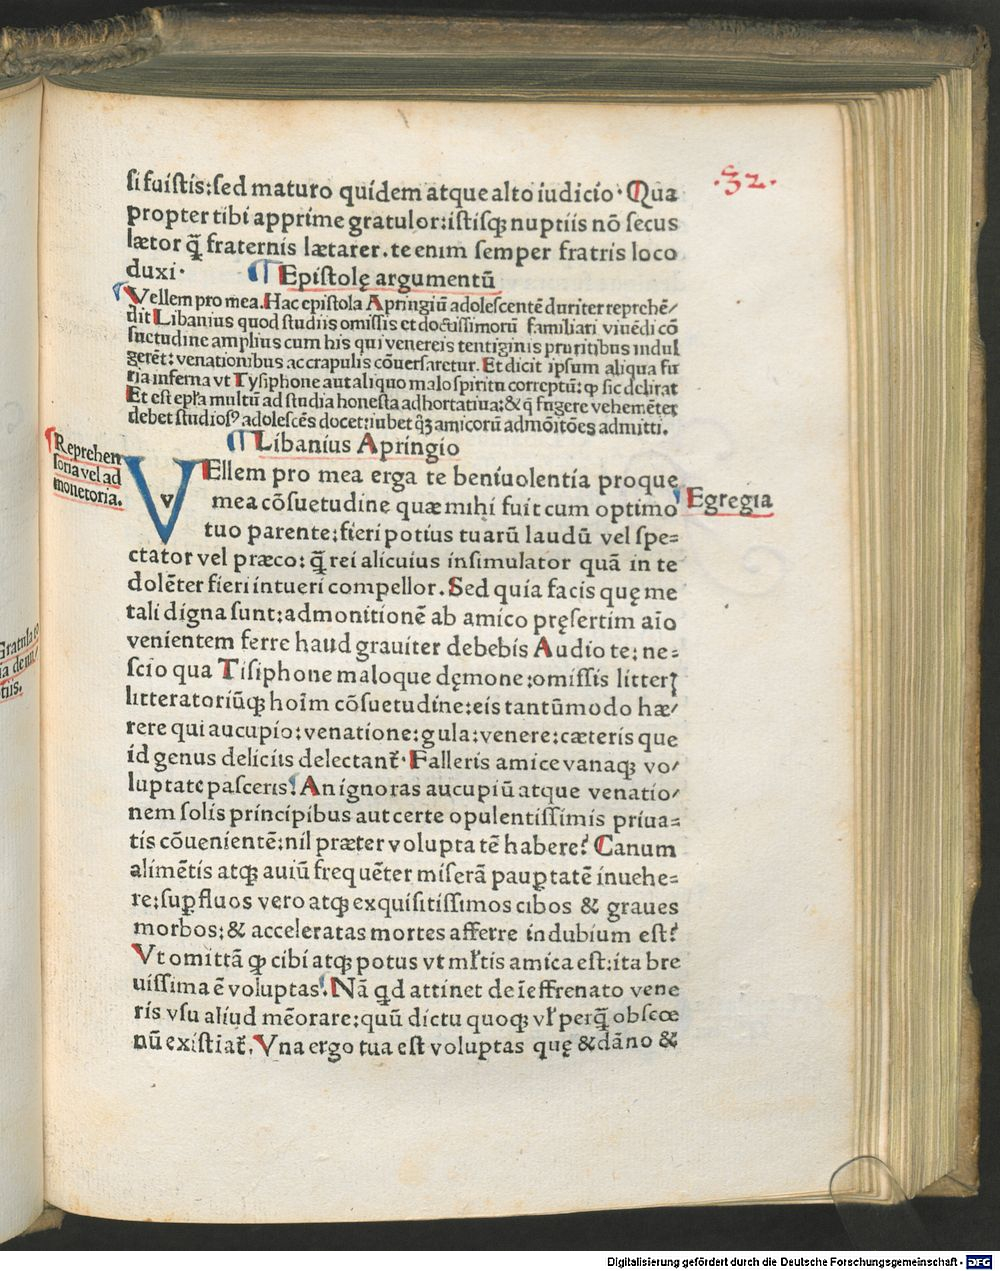 ·32·
si fuistis: sed maturo quidem atque alto iudicio· Qua
propter tibi apprime gratulor: istisqꝫ nuptiis nō secus
lætor q̄ fraternis lætarer. te enim semper fratris loco
duxi·
¶ Epistolę argumentū
Vellem pro mea. Hac epistola Apringiū adolescentē duriter reprehē/
dit Libanius quod studiis omissis et doctissimorū familiari viuēdi cō
suetudine amplius cum his qui venereis tentiginis pruritibus indul
gerēt: venationibus ac crapulis cōuersaretur. Et dicit ipsum aliqua fu
ria inferna vt Tysiphone aut aliquo malo spiritu correptū: ꝙ sic delirat
Et est epl'a multū ad studia honesta adhortatiua: & q̄ fugere vehemēter
debet studiosꝰ adolescēs docet: iubet q̄ꝫ amicorū admōitōes admitti.
¶ Libanius Apringio
Reprehen
soria vel ad
monetoria.
VEllem pro mea erga te beniuolentia proque
mea cōsuetudine quæ mihi fuit cum optimo
tuo parente: fieri potius tuarū laudū vel spe=
Egregia
ctator vel præco: q̄ rei alicuius insimulator quā in te
dolēter fieri intueri compellor. Sed quia facis quę me
tali digna sunt: admonitionē ab amico pręsertim aīo
venientem ferre haud grauiter debebis Audio te: ne=
scio qua Tisiphone maloque dęmone: omissis litteris
litteratoriūqꝫ hoīm cōsuetudine: eis tantūmodo hæ/
rere qui aucupio: venatione: gula: venere: cæteris que
id genus deliciis delectant᷑· Falleris amice vanaqꝫ vo/
luptate pasceris! An ignoras aucupiū atque venatio/
nem solis principibus aut certe opulentissimis priua=
tis cōuenientē: nil præter voluptatē habere? Canum
alimētis atqꝫ auiū frequēter miserā paup̱tatē inuehe=
re: sup̱fluos vero atqꝫ exquisitissimos cibos & graues
morbos: & acceleratas mortes afferre indubium est?
Vt omittā ꝙ cibi atqꝫ potus vt ml'tis amica est: ita bre
uissima ē voluptas!. Nā qd attinet de īeffrenato vene
ris vsu aliud mēorare: quū dictu quoqꝫ vl' perq̄ obscœ
nū existiat᷑. Vna ergo tua est voluptas quę & dāno &
Gratulato
ia de nu/
ptiis.
Digitalisierung gefördert durch die Deutsche Forschungsgemeinschaft - DFG